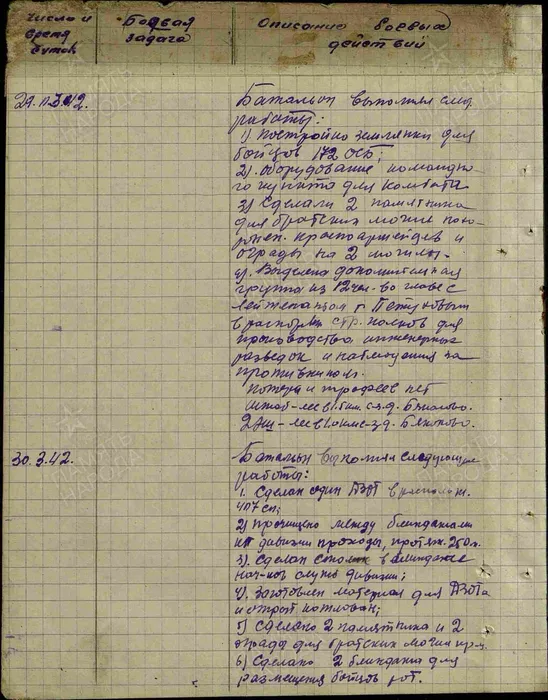 Число и
время
суток
Боевая
задача
Описание боевых
действий
29.3.42.
Батальон выполнял след.
работы:
1) Постройка землянки для
бойцов 172 ОСБ;
2) Оборудование командно-
го пункта для комбата
3) Сделали 2 памятника
для братских могил похо-
ронен. красноармейцев и
ограды на 2 могилы.
4). Выделена дополнительная
группа из 12 чел. во главе с
лейтенантом т. Петуховым
в распоряж. стр. полков для
производства инженерных
разведок и наблюдения за
противником.
Потерь и трофеев нет
Штаб-лес
с-з. д.
2
лес
с-з д.
30.3.42.
Батальон выполнял следующие
работы:
1. Сделан один ДЗОТ в располож.
407 сп;
2) Прочищено между блиндажами
КП дивизии проходы, протяж. 250 м.
3). Сделан столик в блиндаже
нач-ков служб дивизии;
4). Заготовлен материал для ДЗОТа
и открыт котлован;
5) Сделано 2 памятника и 2
ограды для братских могил
6) Сделано 2 блиндажа для
размещения бойцов рот.